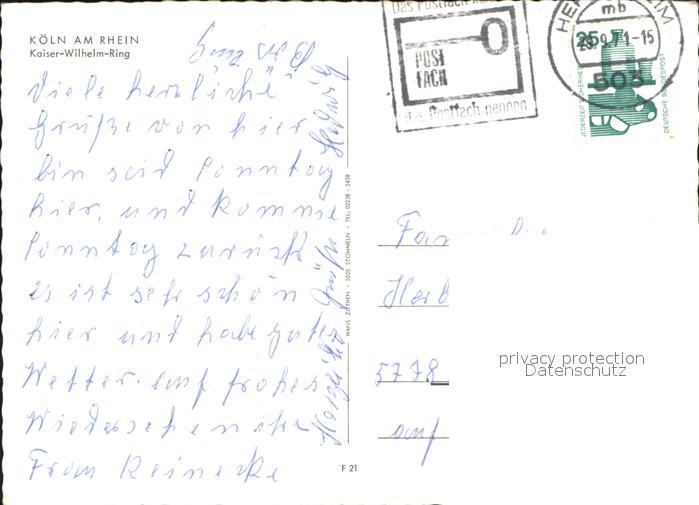 KÖLN AM RHEIN
Kaiser-Wilhelm-Ring
Viele herzliche
Grüße von hier
bin seid Sonntag
hier, und komme
Sonntag zurück
es ist sehr schön
hier und habe gutes
Wetter. auf frohes
Wiedersehen ihre
Frau Reinecke
Herzliche Grüße Hedwig
HANS ZIETHEN · 5025 STOMMELN · TEL. 02238 · 2438
F 21
Das Postfach
POST
FACH
das Postfach nennen
mb
29.9.71-15
503
25
JEDERZEIT SICHERHEIT
DEUTSCHE BUNDESPOST
Fam
D.
Herb
5778
auf
privacy protection
Datenschutz